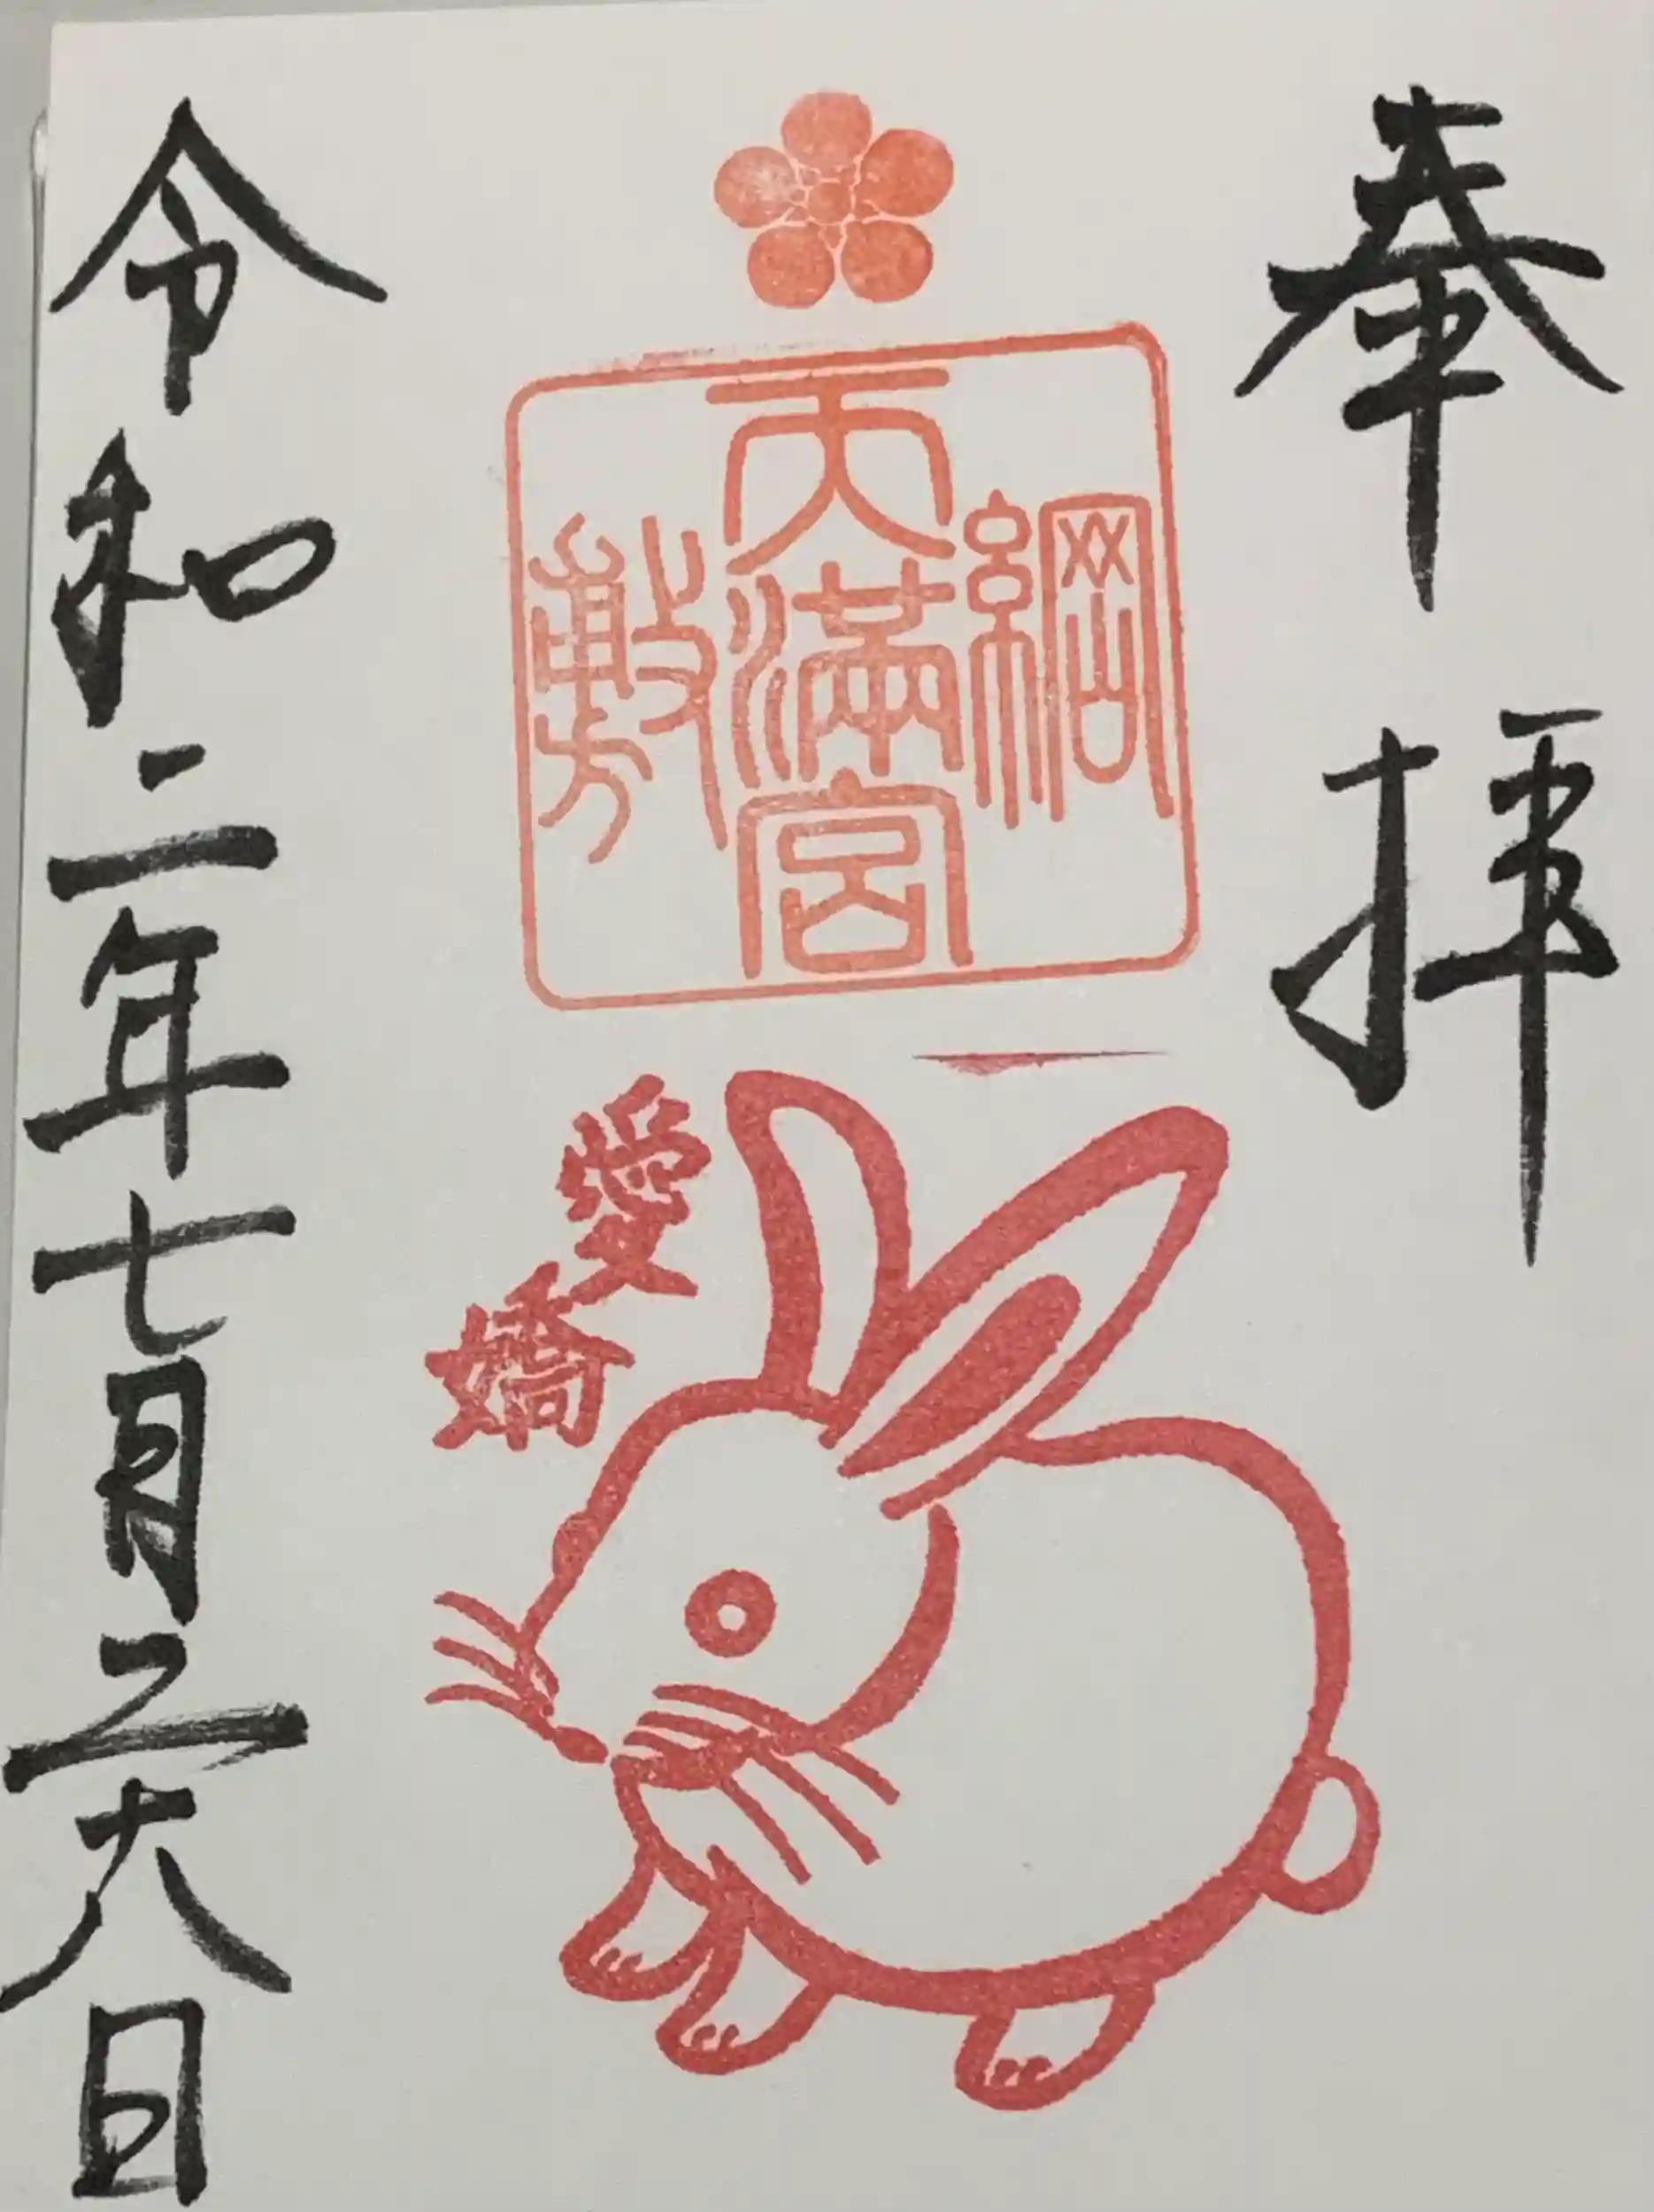 奉拝
綱敷天満宮
愛嬌
令和二年七月二十八日